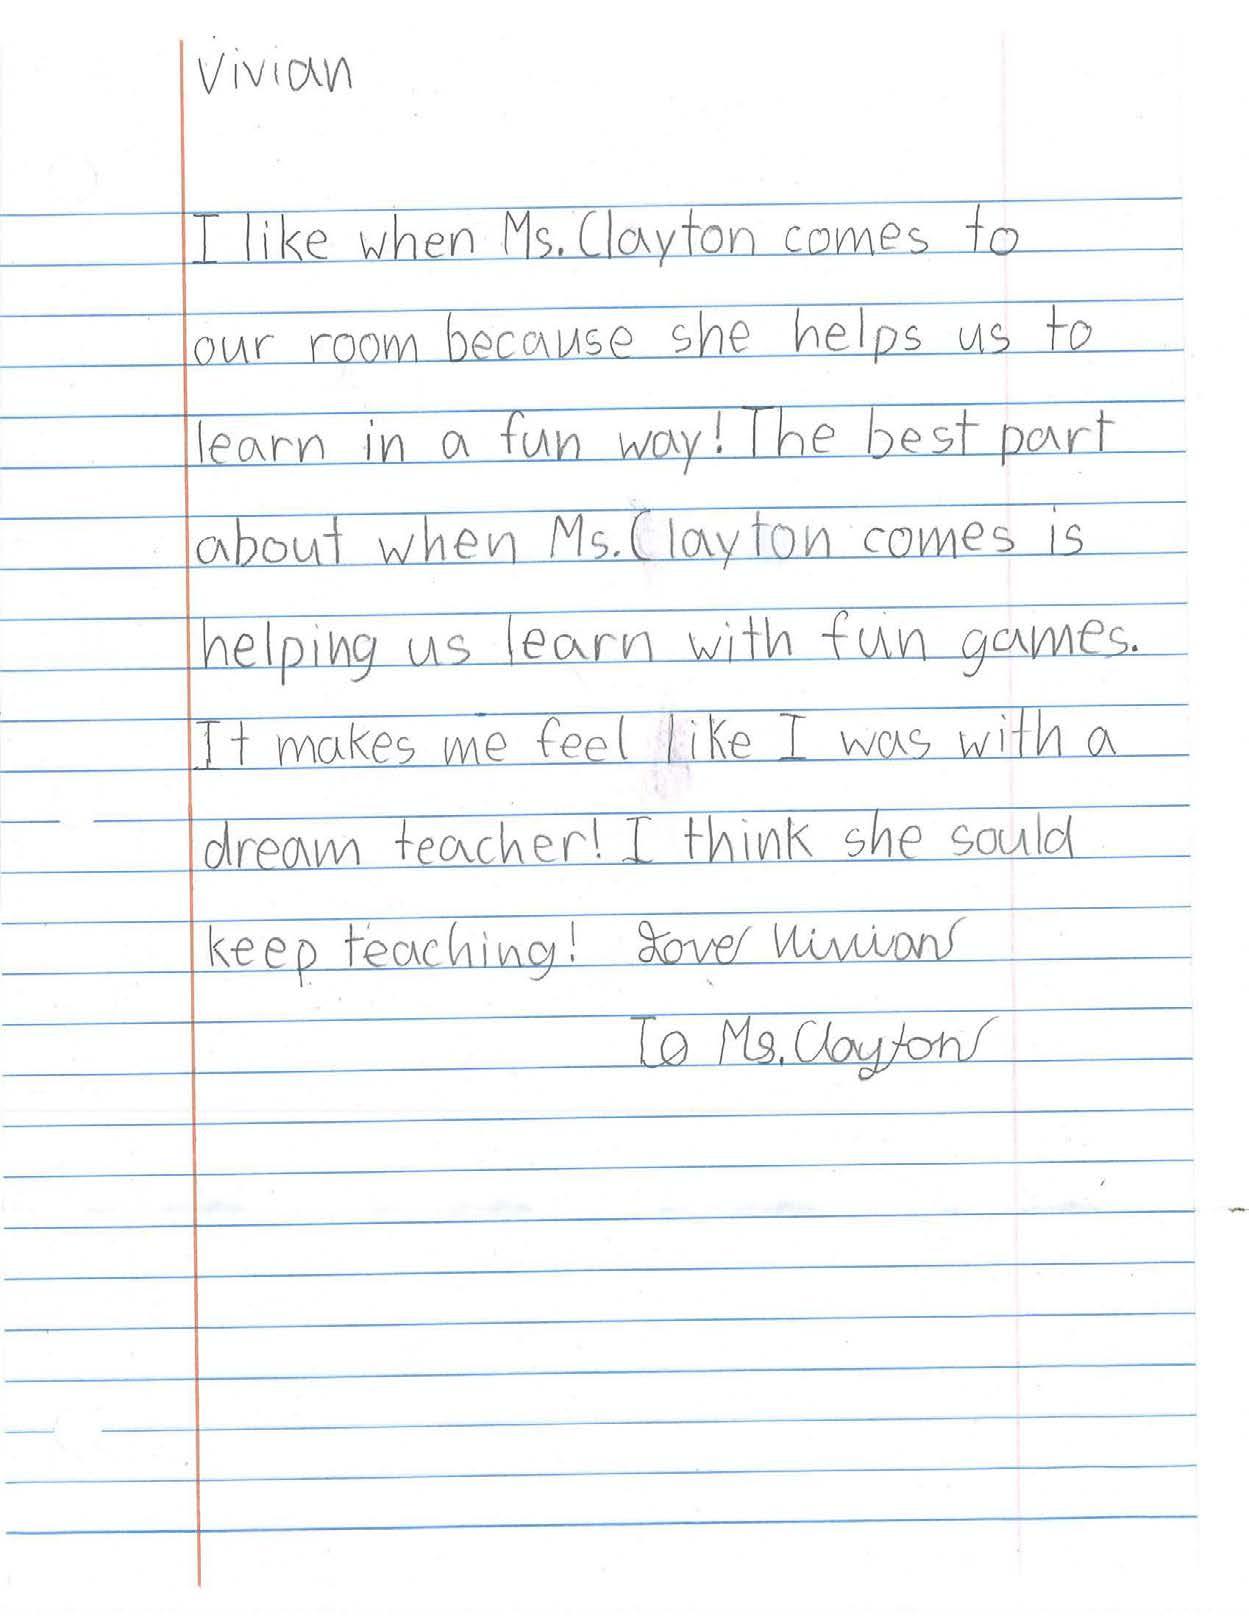 Vivian
I like when Ms. Clayton comes to
our room because she helps us to
learn in a fun way! The best part
about when Ms. Clayton comes is
helping us learn with fun games.
It makes me feel like I was with a
dream teacher! I think she sould
keep teaching! Love Vivian
To Ms. Clayton